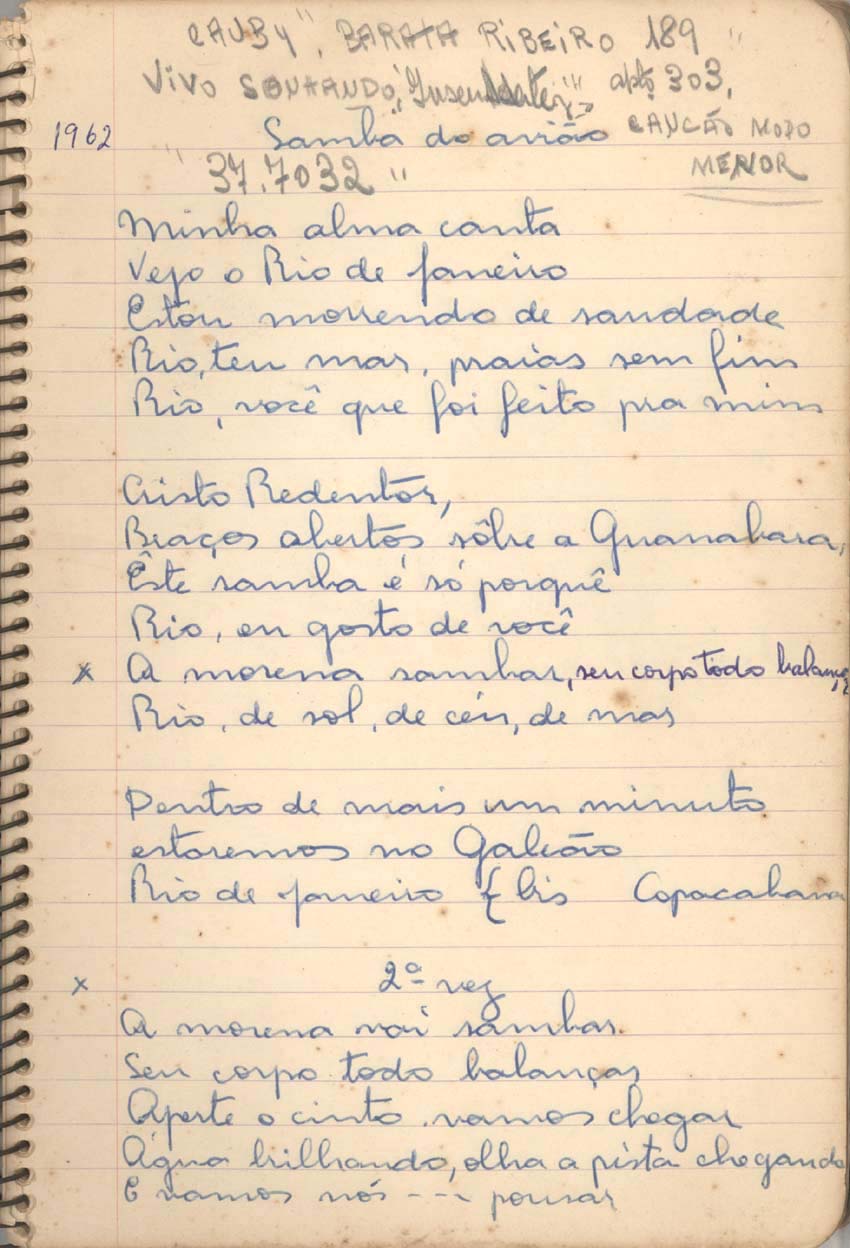 "CAUBY", BARATA RIBEIRO 189 "
VIVO SONHANDO, "Insensatez" apto 303,
1962 Samba do avião CANÇÃO MODO
" 37.7032 " MENOR
Minha alma canta
Vejo o Rio de Janeiro
Estou morrendo de saudade
Rio, teu mar, praias sem fim
Rio, você que foi feito pra mim
Cristo Redentor,
Braços abertos sôbre a Guanabara,
Êste samba é só porquê
Rio, eu gosto de você
x A morena sambar, seu corpo todo balançar
Rio, de sol, de céu, de mar
Dentro de mais um minuto
estaremos no Galeão
Rio de Janeiro { bis Copacabana
x 2ª vez
A morena vai sambar
Seu corpo todo balançar
Aperte o cinto, vamos chegar
Água brilhando, olha a pista chegando
E vamos nós --- pousar